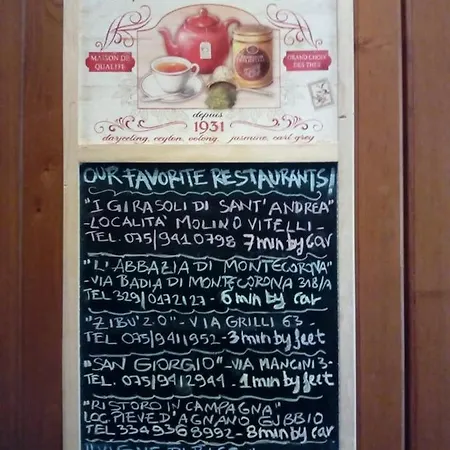 MAISON DE
QUALITÉ
GRAND CHOIX
DES THÉS
depuis
1931
darjeeling, ceylon, oolong, jasmine, earl grey
OUR FAVORITE RESTAURANTS!
"I GIRASOLI DI SANT'ANDREA"
-LOCALITÀ MOLINO VITELLI-
TEL. 075/9410798 7min by car
"L'ABBAZIA DI MONTECORONA"
-VIA BADIA DI MONTECORONA 318/A
TEL 329/0172127 - 6 min by car
"ZIBU' 2.0" - VIA GRILLI 63-
TEL 075/9411952 - 3min by feet
"SAN GIORGIO" - VIA MANCINI 3-
TEL. 075/9412944 - 1min by feet
"RISTORO IN CAMPAGNA"
LOC. PIEVE D'AGNANO GUBBIO
TEL 334 936 8992 - 8min by car